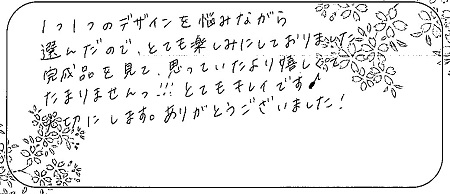 1つ1つのデザインを悩みながら
選んだので、とても楽しみにしておりました
完成品を見て、思っていたより嬉しくて
たまりませんっ!!! とてもキレイです♪
切にします。ありがとうございました!